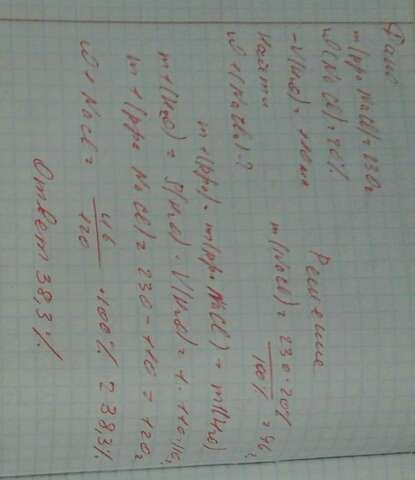 Дано
m(рра NaCl)=230г
ω(NaCl)=20%
-V(H₂O)=110мл
Найти
ω1(NaCl)-?
Решение
m(NaCl)=230·20%/100%=46г
m1(рра)=m(рра NaCl)-m(H₂O)
m1(H₂O)=ρ(H₂O)·V(H₂O)=1·110=110г
m1(рра NaCl)=230-110=120г
ω1 NaCl=46/120·100%=38,3%
Ответ 38,3%